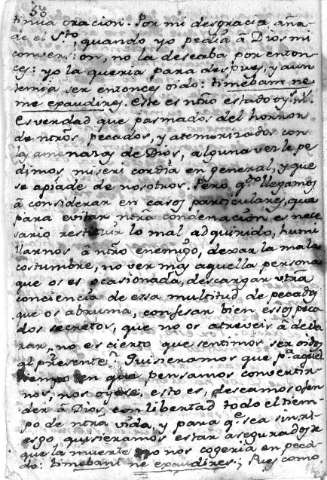 tinua oracion. Por mi desgracia, aña-
de el Sto, quando yo pedia â Dios mi
conversion, no la deseaba por enton-
ces: yo la queria para despues, y aun
temia ser entonces oido: timebam ne
me exaudires. Este es ntro estado oy:
Es verdad que pasmados del horror
de ntros pecados, y atemorizados con
las amenazas de Dios, alguna vez le pe-
dimos misericordia en general, y que
se apiade de nosotros. Pero qdo llegamos
â considerar en casos particulares, que
para evitar ntra condenacion, es nece-
sario restituir lo mal adquirido, humi-
llarnos â ntro enemigo, dexar la mala
costumbre, no ver mas aquella persona
que os es ocasionada, descargar vtra
conciencia de essa multitud de pecados
que os abruma, confesar bien essos peca-
dos secretos, que no os atreveis â decla-
rar, no es cierto que sentimos ser oidos
al presente? Quisieramos que pa aquel
tiempo en que pensamos convertir-
nos, nos oyese, esto es, deseamos ofen-
der â Dios, con libertad todo el tiem-
po de ntra vida, y para qe sea sin ri-
esgo, quisieramos estar asegurados de
que la muerte no nos cogeria en peca-
do: timebant ne exaudires; Pues como